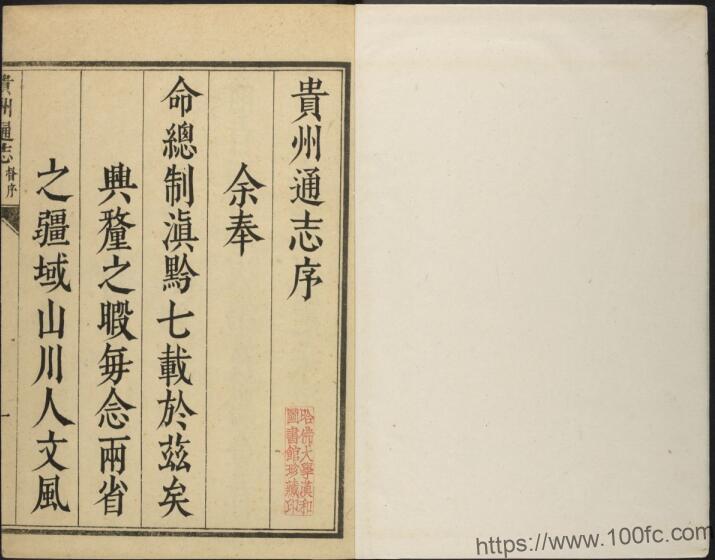 貴州通志序
余奉
命總制滇黔七載於茲矣
興釐之暇每念兩省
之疆域山川人文風
貴州通志 督序
一
哈佛大學漢和
圖書館珍藏印
https://www.100fc.com